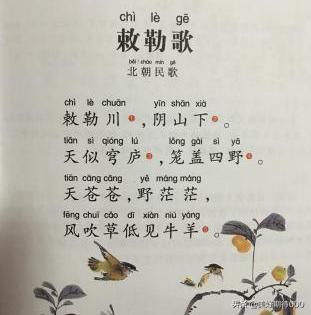 chì lè gē
敕勒歌
běi cháo mín gē
北朝民歌
chì lè chuān yīn shān xià
敕勒川❶,阴山下❷。
tiān sì qióng lú lǒng gài sì yě
天似穹庐❸,笼盖四野❹。
tiān cāng cāng yě máng máng
天苍苍,野茫茫,
fēng chuī cǎo dī xiàn niú yáng
风吹草低见牛羊❺。